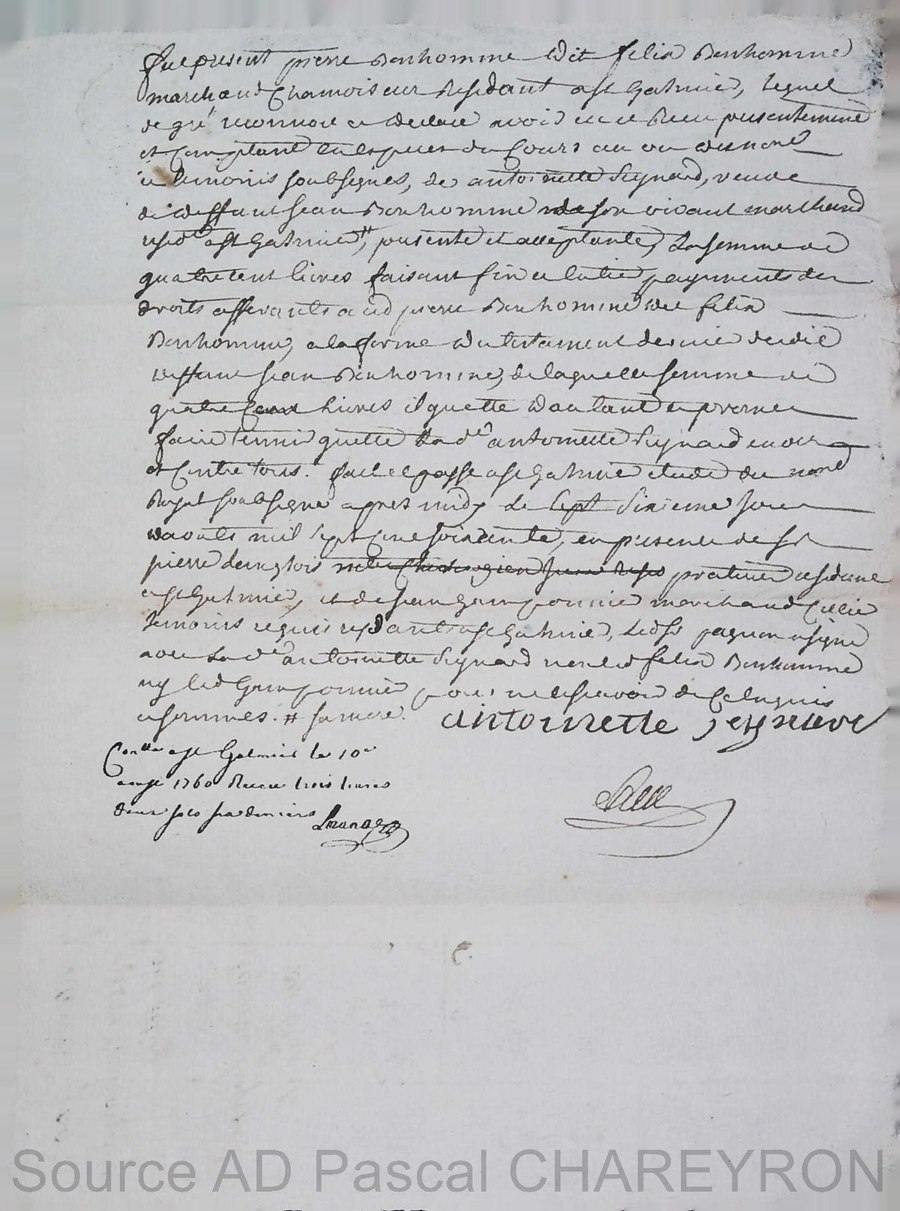 fut present pierre Bonhomme dit felix Bonhomme
marchand Chamoiseur Residant a st Galmier, lequel
de gré reconnoit et declare avoir eu et Receu presentement
et Comptant en especes du Cours au vu du no.re
et temoins soubsignés, de antoinette peynard, veuve
de deffunt Jean Bonhomme de son vivant marchand
resid.t a st Galmier #, presente et acceptante, la somme de
quatre cent livres faisant fin et entier payements des
droits afferants aud pierre Bonhomme dit felix
Bonhomme, a la forme du testament dernier dudit
deffunt Jean Bonhomme, de laquelle somme de
quatre Cent Livres il quette d'autant et promet
faire tenir quette lad.e antoinette peynard envers
et Contre tous. fait et passé a st Galmier etude du no.re
Royal soubsigné apres midy le sept sixieme jour
d'aoust mil sept Cent soixante, en presence de sr
pierre praticien residant
a st Galmier, et de Jean marchand
temoins requis resid.ants a st Galmier, a signé
avec lad.e antoinette peynard non led felix Bonhomme
ny led pour ne le scavoir de Ce enquis
et sommés. # sa mere. antoinette peynard
Con.lle a st Galmier le 10e
aoust 1760 Receu trois livres
deux sols six deniers
Source AD Pascal CHAREYRON